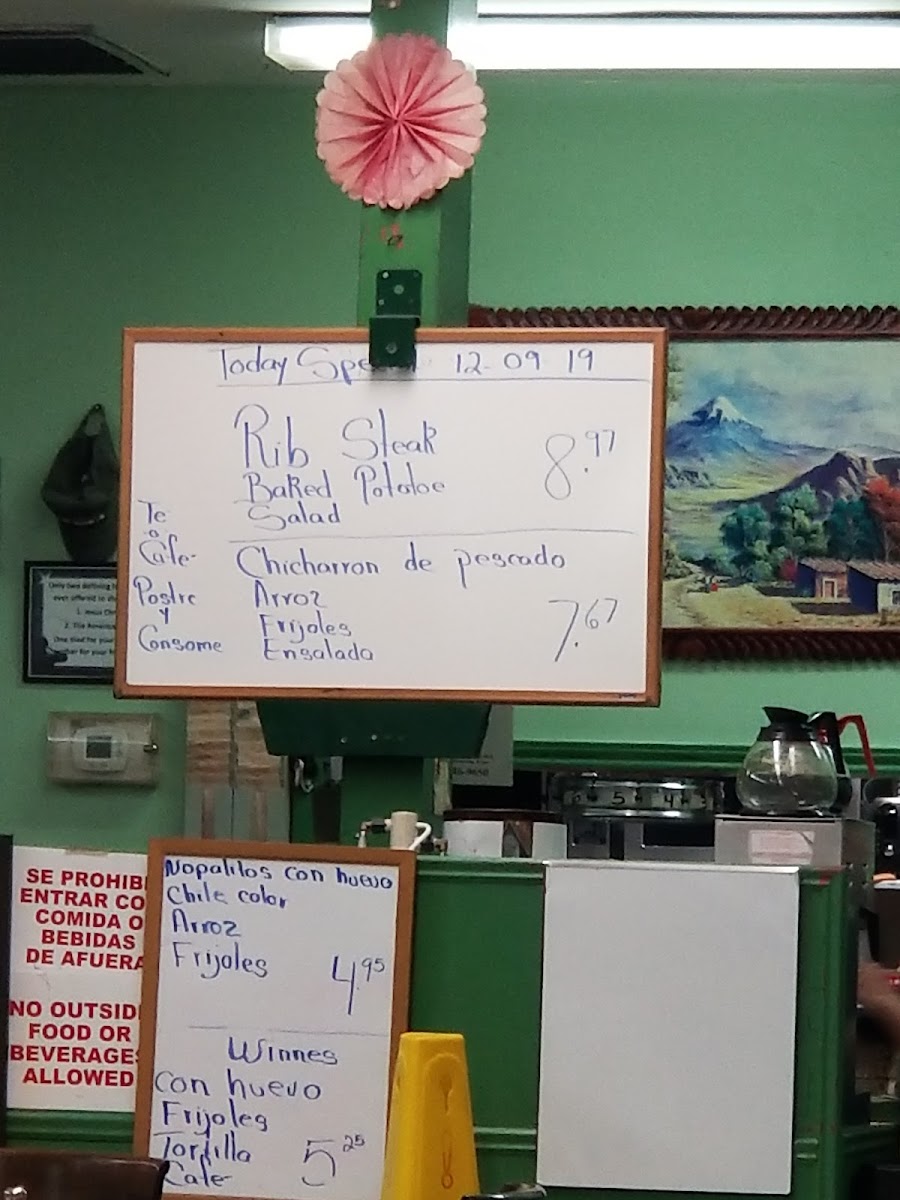 Today 12-09-19
Rib Steak
8.97
Baked Potatoe
Salad
Te
o
Cafe
Postre
y
Consome
Chicharron de pescado
Arroz
Frijoles
Ensalada
7.67
Nopalitos con huevo
Chile color
Arroz
Frijoles
4.95
Winnes
con huevo
Frijoles
Tortilla
Cafe
5.25
SE PROHIB
ENTRAR CO
COMIDA O
BEBIDAS
DE AFUERA
NO OUTSID
FOOD OR
BEVERAGES
ALLOWED